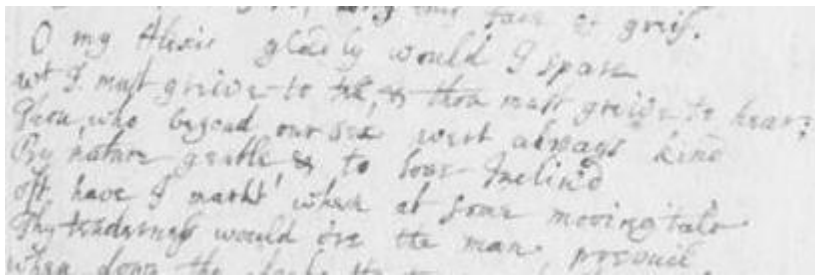 this tale of grief.
O my Alexis gladly would I spare
wt I must greive to tel, & thou must greive to hear;
Thou, who beyond our sex wert always kind
By nature gentle & to love Inclin'd
oft have I markt when at some moving tale
Thy tenderness would ore the man prevail
when down the